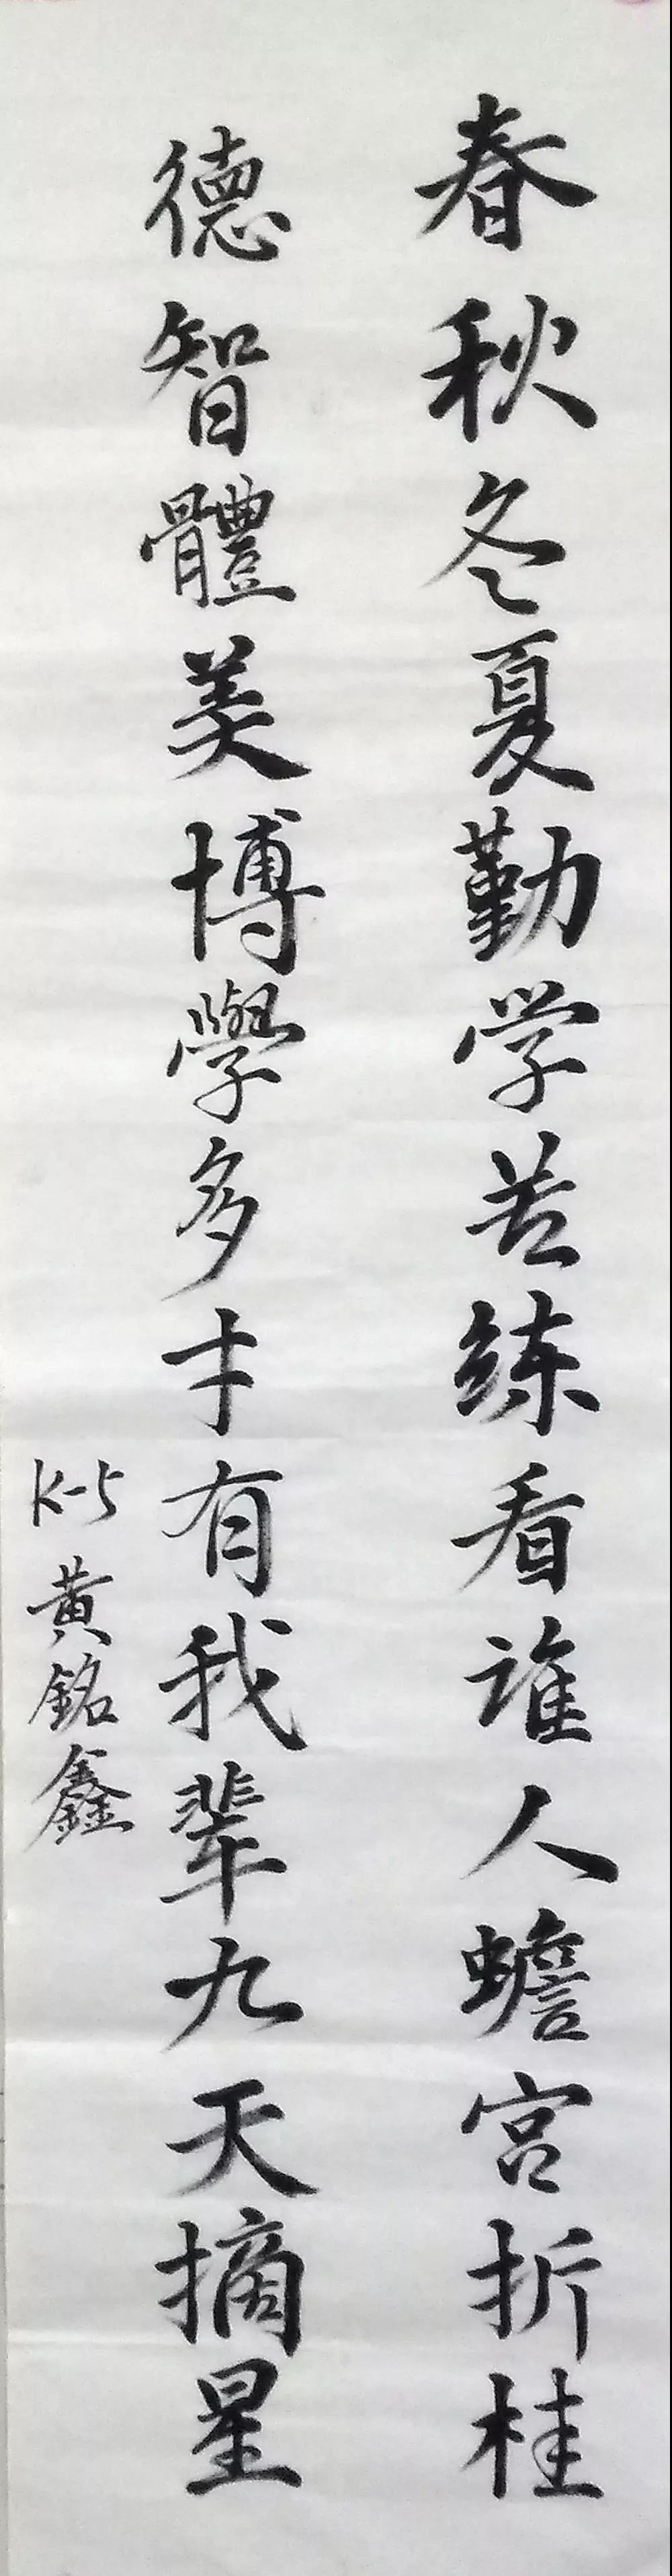 春秋冬夏勤学苦练看谁人蟾宫折桂
德智體美博學多才有我辈九天摘星
K-5 黄銘鑫